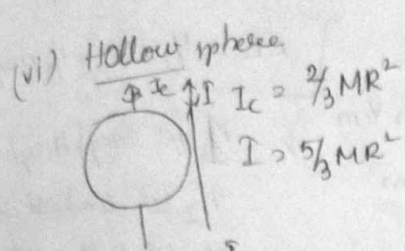 (vi) Hollow sphere
Ic I Ic = 2/3 MR²
I = 5/3 MR²